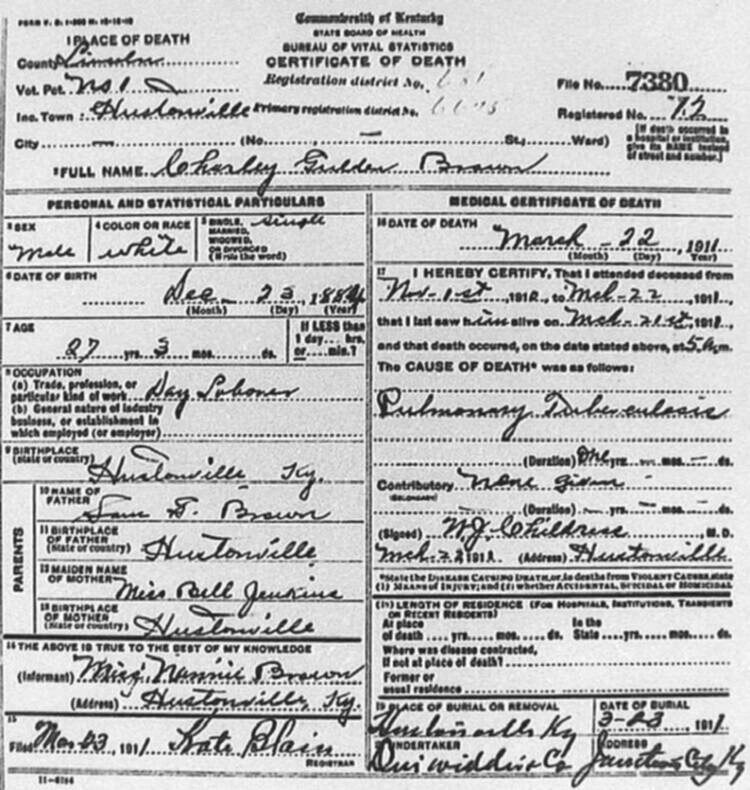 Commonwealth of Kentucky
STATE BOARD OF HEALTH
BUREAU OF VITAL STATISTICS
CERTIFICATE OF DEATH
1 PLACE OF DEATH
County Lincoln
Vot. Pct. No 1
Inc. Town Hustonville
City — (No. — St., Ward)
Registration district No.
Primary registration district No.
File No. 7380
Registered No. 72
[If death occurred in a hospital or institution, give its NAME instead of street and number.]
2 FULL NAME Charley Gulden Brown
PERSONAL AND STATISTICAL PARTICULARS
3 SEX Male
4 COLOR OR RACE White
5 SINGLE, MARRIED, WIDOWED, OR DIVORCED (Write the word) Single
6 DATE OF BIRTH
Dec 23, 1884
(Month) (Day) (Year)
7 AGE
27 yrs. 3 mos. ds.
If LESS than 1 day... hrs. or... min.?
8 OCCUPATION
(a) Trade, profession, or particular kind of work Day Laborer
(b) General nature of industry
business, or establishment in
which employed (or employer)
9 BIRTHPLACE
(State or country) Hustonville Ky.
PARENTS
10 NAME OF FATHER Sam T. Brown
11 BIRTHPLACE OF FATHER (State or country) Hustonville
12 MAIDEN NAME OF MOTHER Miss Bell Jenkins
13 BIRTHPLACE OF MOTHER (State or country) Hustonville
14 THE ABOVE IS TRUE TO THE BEST OF MY KNOWLEDGE
(Informant) Miss Nannie Brown
(Address) Hustonville Ky.
15
Filed Mar 23, 1911 Kate Blain
REGISTRAR
11-6184
MEDICAL CERTIFICATE OF DEATH
16 DATE OF DEATH
March - 22, 1911
(Month) (Day) (Year)
17 I HEREBY CERTIFY, That I attended deceased from
Nov-1st 1910, to Mch-22, 1911,
that I last saw him alive on Mch-21st, 1911,
and that death occured, on the date stated above, at 5 a.m.
The CAUSE OF DEATH* was as follows:
Pulmonary Tuberculosis
(Duration) One yrs. — mos. — ds.
Contributory None given
(SECONDARY)
(Duration) — yrs. — mos. — ds.
(Signed) W.J. Childress M.D.
Mch-22 1911 (Address) Hustonville
*State the DISEASE CAUSING DEATH, or, in deaths from VIOLENT CAUSES, state
(1) MEANS OF INJURY; and (2) whether ACCIDENTAL, SUICIDAL OR HOMICIDAL
LENGTH OF RESIDENCE (FOR HOSPITALS, INSTITUTIONS, TRANSIENTS
OR RECENT RESIDENTS)
At place of death .... yrs. .... mos. .... ds. In the State .... yrs. .... mos. .... ds.
Where was disease contracted,
if not at place of death?
Former or
usual residence
19 PLACE OF BURIAL OR REMOVAL Hustonville Ky
DATE OF BURIAL 3-23, 1911
UNDERTAKER Dinwiddie & Co
ADDRESS Junction City Ky